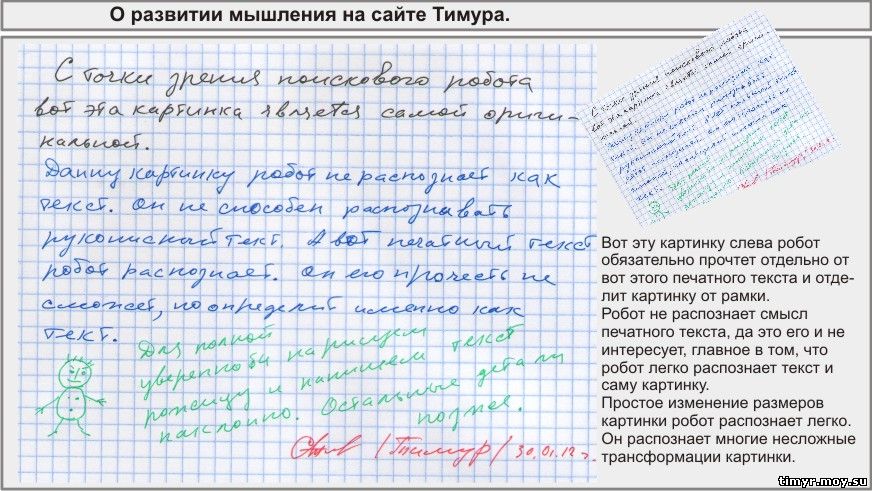 О развитии мышления на сайте Тимура.
С точки зрения поискового робота
вот эта картинка является самой ориги-
нальной.
Данну картинку робот не распознает как
текст. Он не способен распознавать
рукописный текст. А вот печатный текст
робот распознает. Он его прочесть не
сможет, но определит именно как
текст.
Для полной
уверенноби нарисуем
рожицу и напишем текст
наклонно. Остальные детали
позже.
/Тимур/ 30.01.12 г.
Вот эту картинку слева робот
обязательно прочтет отдельно от
вот этого печатного текста и отде-
лит картинку от рамки.
Робот не распознает смысл
печатного текста, да это его и не
интересует, главное в том, что
робот легко распознает текст и
саму картинку.
Простое изменение размеров
картинки робот распознает легко.
Он распознает многие несложные
трансформации картинки.
timyr.moy.su